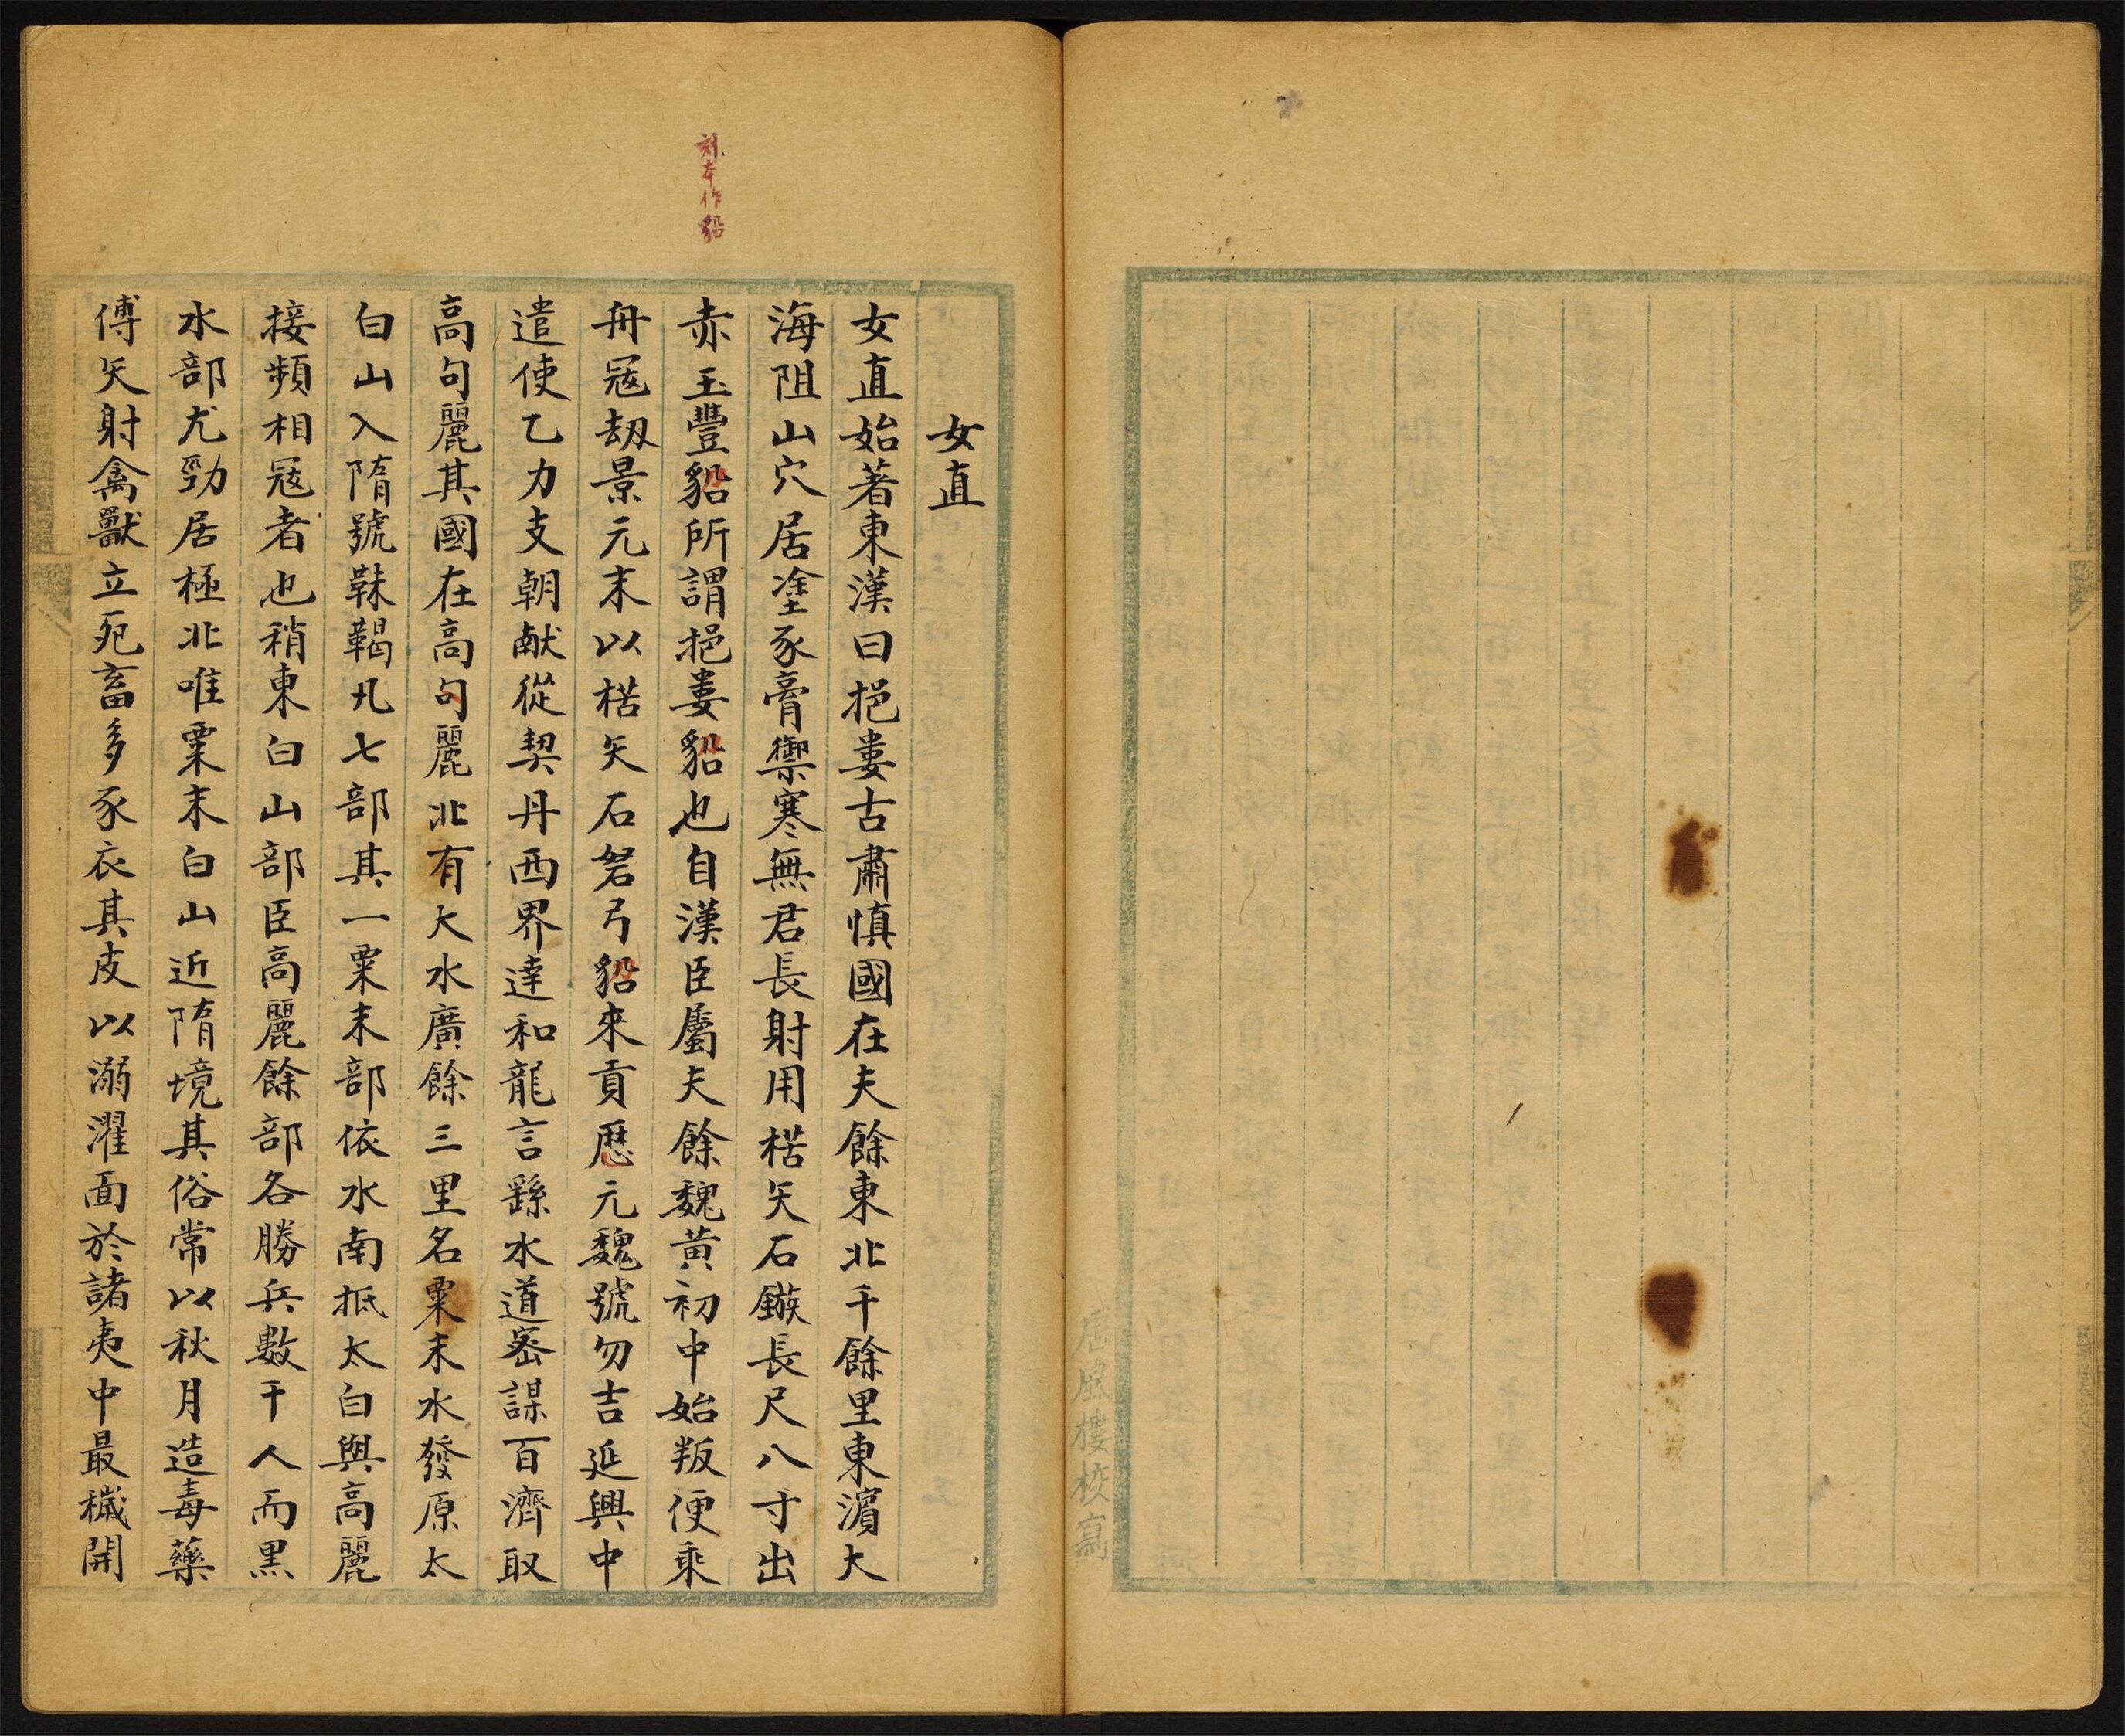 唐風樓校寫
刻本作貂
女直
女直始著東漢曰挹婁古肅慎國在夫餘東北千餘里東濵大
海阻山穴居塗豕膏禦寒無君長射用楛矢石鏃長尺八寸出
赤玉豐貂所謂挹婁貂也自漢臣屬夫餘魏黃初中始叛便乘
舟冦刼景元末以楛矢石砮弓貂來貢歷元魏號勿吉延興中
遣使乙力支朝献從契丹西界達和龍言繇水道密謀百濟取
高句麗其國在高句麗北有大水廣餘三里名粟末水發原太
白山入隋號靺鞨凡七部其一粟末部依水南抵太白與高麗
接頻相冦者也稍東白山部臣高麗餘部各勝兵數千人而黒
水部尤勁居極北唯粟末白山近隋境其俗常以秋月造毒藥
傅矢射禽獸立死畜多豕衣其皮以溺濯面於諸夷中最穢開